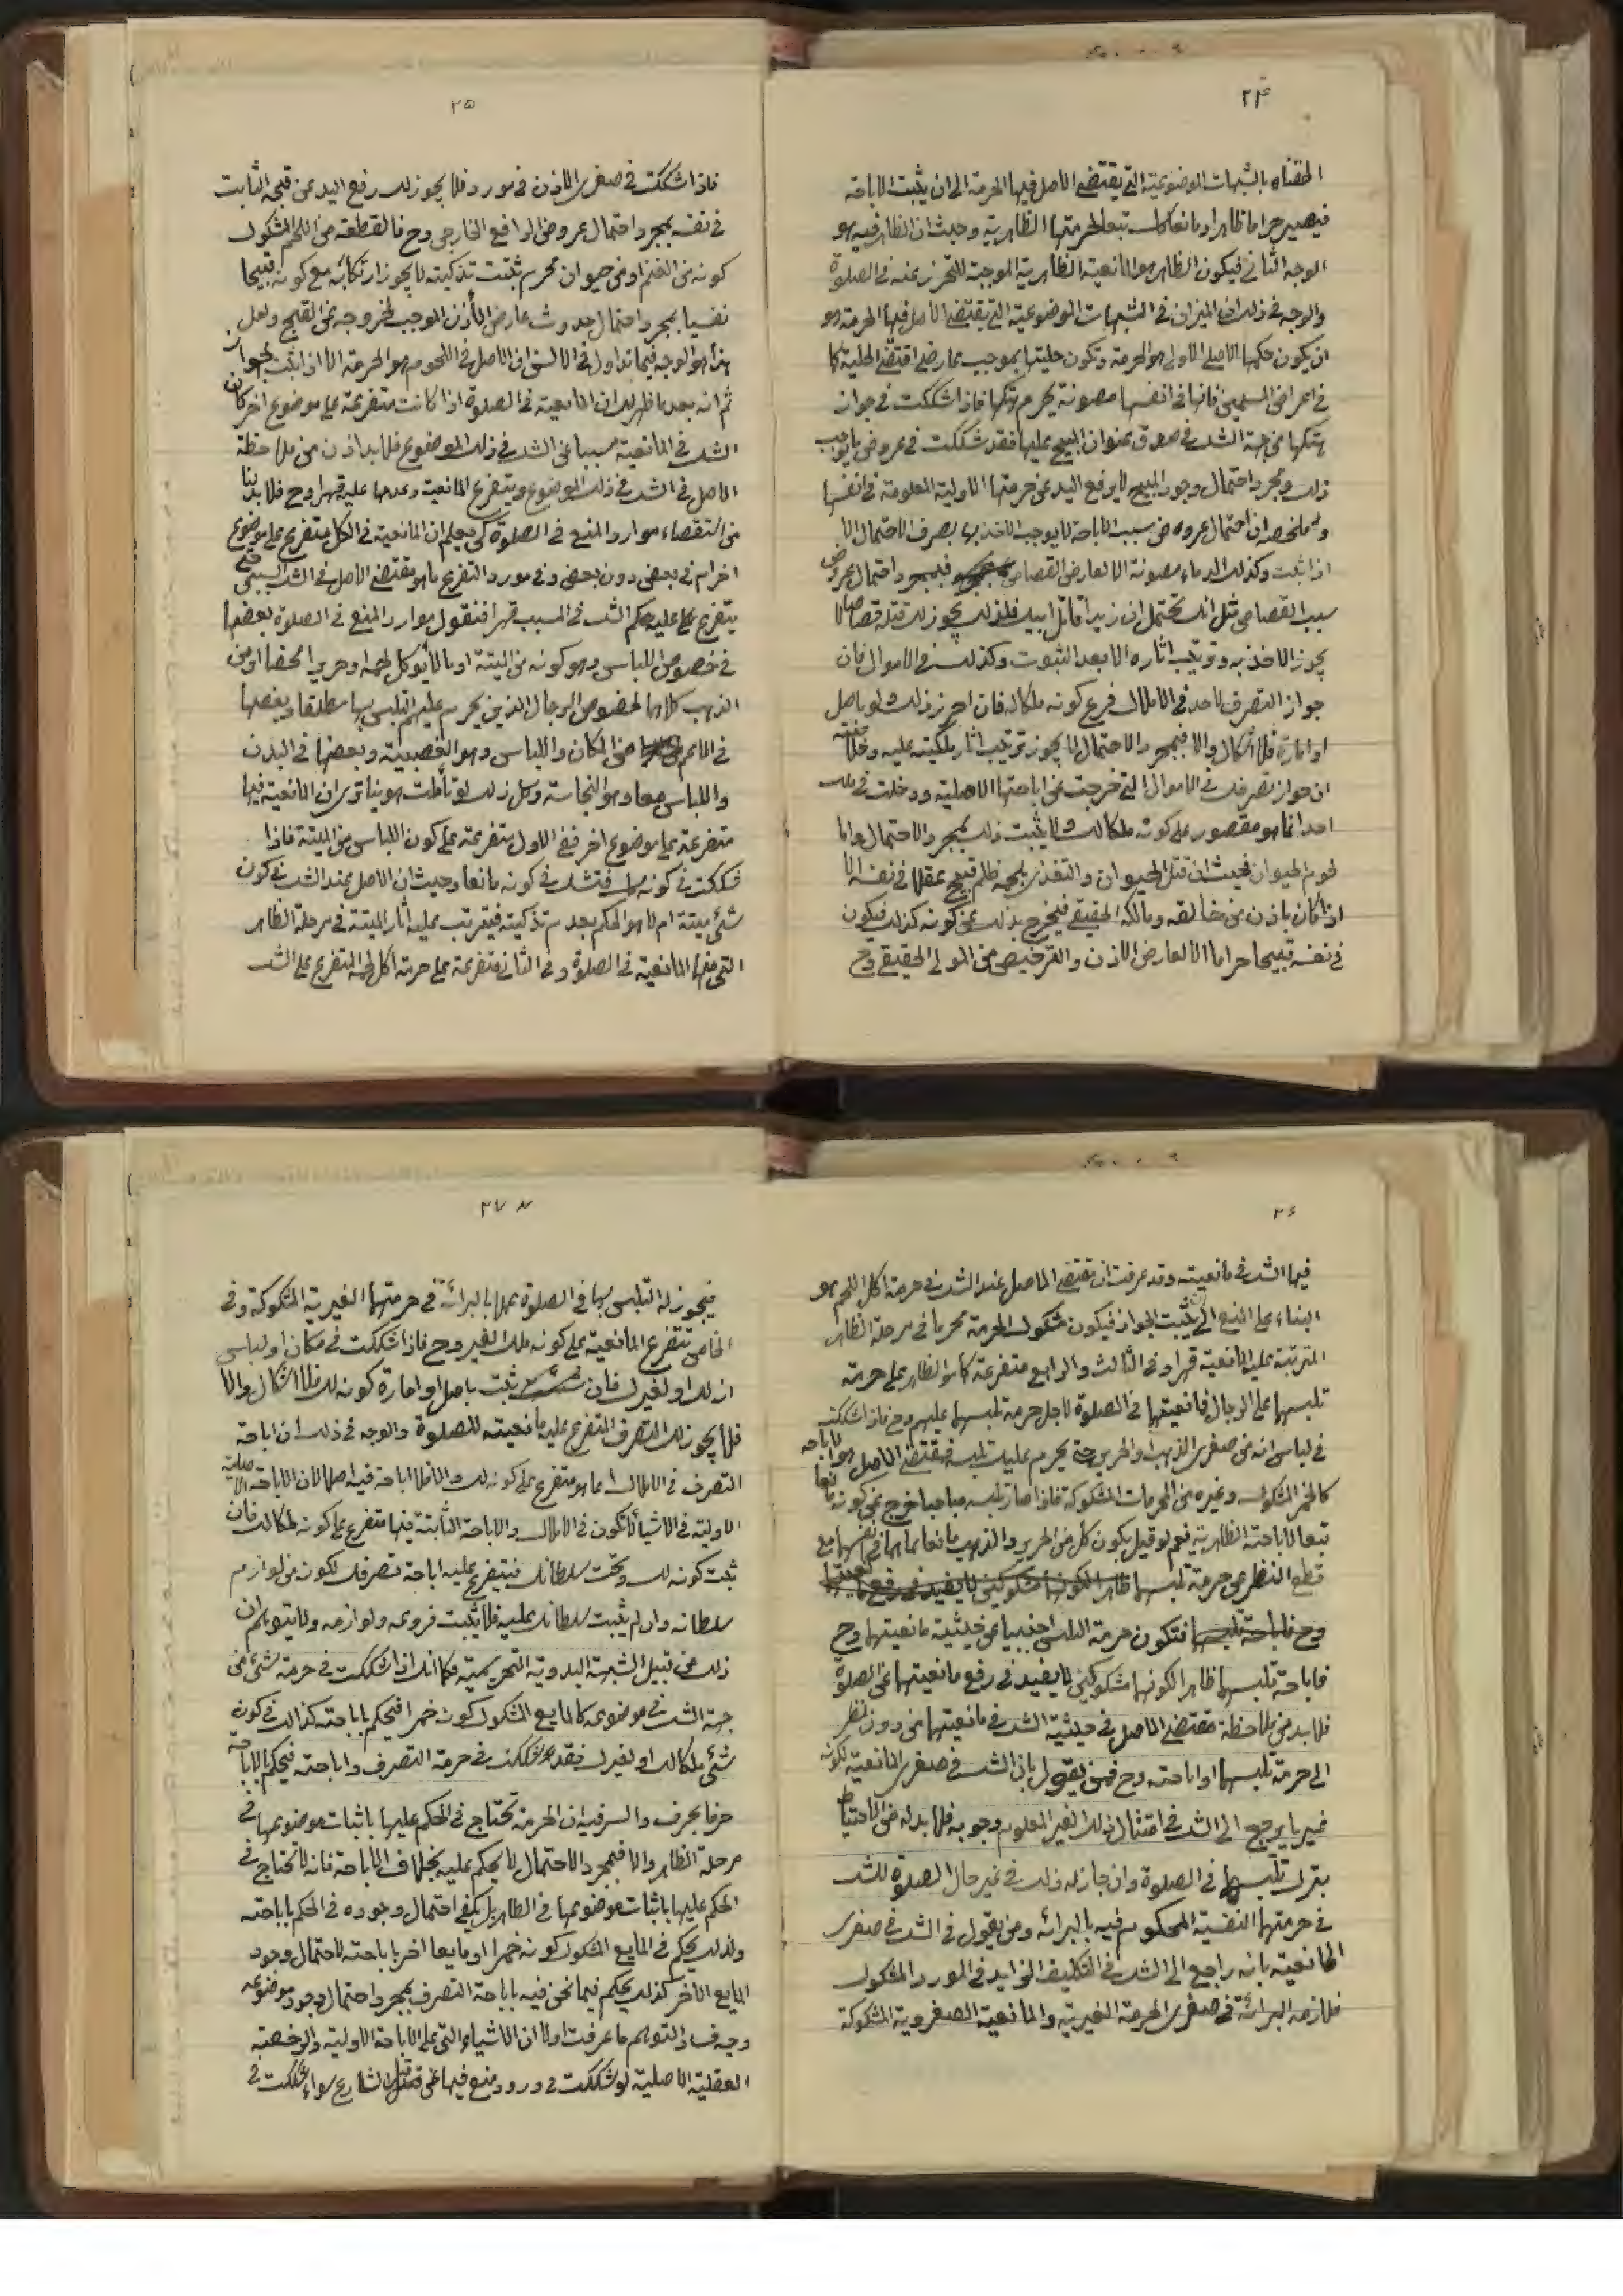 ۲۴
الحقناه بالشبهات الموضوعية التي يقتضي الاصل فيها الحرمة الى ان يثبت الاباحة
فيصير حراما ظاهرا ومانعا كذلك تبعا لحرمتها الظاهرية وحيث ان الظاهر فيه هو
الوجه الثاني فيكون الظاهر هو المانعية الظاهرية الموجبة للتحرز عنه في الصلوة
والوجه في ذلك ان الميزان في الشبهات الموضوعية التي يقتضي الاصل فيها الحرمة هو
ان يكون حكمها الاصلي الاولي هو الحرمة وتكون حليتها بموجب عارض اقتضى الحلية كما
في اعراض المسلمين فانها في انفسها مصونة يحرم هتكها فاذا شككت في جواز
هتكها من جهة الشك في صدق عنوان المبيح عليها فقد شككت في عروض ما يوجب
ذلك ومجرد احتمال وجود المبيح لا يرفع اليد عن حرمتها الاولية المعلومة في انفسها
وملخصه ان احتمال عروض سبب الاباحة لا يوجب الاخذ بها بصرف الاحتمال الا
اذا ثبت وكذلك الدماء مصونة الا لعارض القصاص فبمجرد احتمال عروض
سبب القصاص مثل انك تحتمل ان زيدا قاتل ابيك فلذلك يجوز لك قتله قصاصا لا
يجوز الاخذ به وترتيب اثاره الا بعد الثبوت وكذلك في الاموال فان
جواز التصرف لاحد في الاملاك فرع كونه ملكا له فان احرز ذلك ولو باصل
او امارة فلا اشكال والا فبمجرد الاحتمال لا يجوز ترتيب اثار ملكيته عليه وخلاصته
ان جواز تصرفك في الاموال التي خرجت عن اباحتها الاصلية ودخلت في ملك
احد انما هو مقصور على كونه ملكا لك ولا يثبت ذلك بمجرد الاحتمال واما
لحوم الحيوان فحيث ان قتل الحيوان والتغذي بلحمه ظلم قبيح عقلا في نفسه الا
اذا كان باذن من خالقه ومالكه الحقيقي فيخرج بذلك عن كونه كذلك فيكون
في نفسه قبيحا حراما الا لعارض الاذن والترخيص من المولى الحقيقي وح
۲۵
فاذا شككت في صغرى الاذن في مورد فلا يجوز لك رفع اليد عن قبحه الثابت
في نفسه بمجرد احتمال عروض الرافع الخارجي وح فالقطعة من اللحم المشكوك
كونه من الغنم او من حيوان محرم ثبتت تذكيته لا يجوز ارتكابه مع كونه قبيحا
نفسيا بمجرد احتمال حدوث عارض المأذن الموجب لخروجه عن القبح ولعل
هذا هو الوجه فيما تداول في الالسن ان الاصل في اللحوم هو الحرمة الا اذا ثبت الجواز
ثم انه بعد ما ظهر لك ان المانعية في الصلوة اذا كانت متفرعة على موضوع اخر كان
الشك في المانعية مسببا عن الشك في ذلك الموضوع فلا بد اذن من ملاحظة
الاصل في الشك في ذلك الموضوع ويتفرع المانعية وعدمها عليه قهرا وح فلا بد لنا
من استقصاء موارد المنع في الصلوة كي يعلم ان المانعية في الكل متفرع على موضوع
اخر ام في بعض دون بعض وفي مورد التفرع ما هو مقتضى الاصل في الشك السببي حتى
يتفرع عليه حكم الشك في المسبب قهرا فنقول موارد المنع في الصلوة بعضها
في خصوص اللباس وهو كونه من الميتة او مما لا يؤكل لحمه او حريرا محضا او من
الذهب كلاهما لخصوص الرجال الذين يحرم عليهم التلبس بها مطلقا وبعضها
في الاعم من المكان واللباس وهو الغصبية وبعضها في البدن
واللباس معا وهو النجاسة وكل ذلك لو تأملت هوينا ترى ان المانعية فيها
متفرعة على موضوع اخر ففي الاول متفرعة على كون اللباس من الميتة فاذا
شككت في كونه منها فتشك في كونه مانعا وحيث ان الاصل عند الشك في كون
شئ ميتة ام لا هو الحكم بعدم تذكيته فيترتب عليه اثار الميتة في مرحلة الظاهر
التي منها المانعية في الصلوة وفي الثاني متفرعة على حرمة اكل لحمه المتفرع على الشك
۲۶
فيها الشك في مانعيته وقد عرفت ان مقتضى الاصل عند الشك في حرمة اكل اللحم هو
البناء على المنع الى ان يثبت الجواز فيكون مشكوك الحرمة محرما في مرحلة الظاهر
المترتبة عليه المانعية قهرا وفي الثالث والرابع متفرعة كما هو الظاهر على حرمة
تلبسها على الرجال فمانعيتها في الصلوة لاجل حرمة تلبسها عليهم وح فاذا شككت
في لباس انه من صغرى الذهب او الحرير حتى يحرم عليك تلبسه فمقتضى الاصل هو الاباحة
كالخمر المشكوك وغيره من المحرمات المشكوكة فاذا صار تلبسه مباحا خرج عن كونه مانعا
تبعا للاباحة الظاهرية نعم لو قيل بكون كل من الحرير والذهب مانعا بما هما في نفسهما مع
قطع النظر عن حرمة تلبسها ظاهرا لكونها مشكوكين لا يفيد في رفع مانعيتها
وح فاباحة تلبسها فتكون حرمة التلبس اجنبيا عن حيثية مانعيتها وح
فاباحة تلبسهما ظاهرا لكونهما مشكوكين لا يفيد في رفع مانعيتهما عن الصلوة
فلا بد من ملاحظة مقتضى الاصل في حيثية الشك في مانعيتهما من دون نظر
الى حرمة تلبسهما او اباحته وح فمن يقول بان الشك في صغرى المانعية لكونه
غيريا يرجع الى الشك في امتثال ذلك الغير المعلوم وجوبه فلا بد له من الاحتياط
بترك تلبسهما في الصلوة وان جاز له ذلك في غير حال الصلوة للشك
في حرمتها النفسية المحكوم فيه بالبرائة ومن يقول في الشك في صغرى
المانعية بانه راجع الى الشك في التكليف الزايد في المورد المشكوك
فلازمه البرائة في صغرى الحرمة الغيرية والمانعية الصغروية المشكوكة
۲۷
فيجوز له التلبس بها في الصلوة عملا بالبرائة في حرمتها الغيرية المشكوكة وفي
الخامس تتفرع المانعية على كونه ملك الغير وح فاذا شككت في مكان او لباس
انه لك او لغيرك فان ثبت باصل او امارة كونه لك فلا اشكال والا
فلا يجوز لك التصرف المتفرع عليه مانعيته للصلوة والوجه في ذلك ان اباحة
التصرف في الاملاك انما هو متفرع على كونه لك والا فلا اباحة فيه اصلا لان الاباحة الاصلية
الاولية في الاشياء لا تكون في الاملاك والاباحة الثابتة فيها متفرع على كونه ملكا لك فان
ثبت كونه لك وتحت سلطانك فيتفرع عليه اباحة تصرفك لكونه من لوازم
سلطانه وان لم يثبت سلطانك عليه فلا يثبت فروعه ولوازمه ولا يتوهم ان
ذلك من قبيل الشبهة البدوية التحريمية فكما انك اذا شككت في حرمة شئ من
جهة الشك في موضوعه كالمايع المشكوك كونه خمرا فتحكم باباحته كذلك في كون
شئ ملكا لك او لغيرك فقد شككت في حرمة التصرف واباحته فيحكم بالاباحة
حرفا بحرف والسر فيه ان الحرمة تحتاج في الحكم عليها باثبات موضوعها في
مرحلة الظاهر والا فبمجرد الاحتمال لا يحكم عليه بخلاف الاباحة فانه لا تحتاج في
الحكم عليها باثبات موضوعها في الظاهر بل يكفي احتمال وجوده في الحكم باباحته
ولذلك يحكم في المايع المشكوك كونه خمرا او مايعا اخر باباحته لاحتمال وجود
المايع الاخر كذلك يحكم فيما نحن فيه باباحة التصرف بمجرد احتمال وجود موضوعه
وجه فساد التوهم ما عرفت اولا ان الاشياء التي على الاباحة الاولية والرخصة
العقلية الاصلية لو شككت في ورود منع فيها من قبل الشارع سواء شككت في